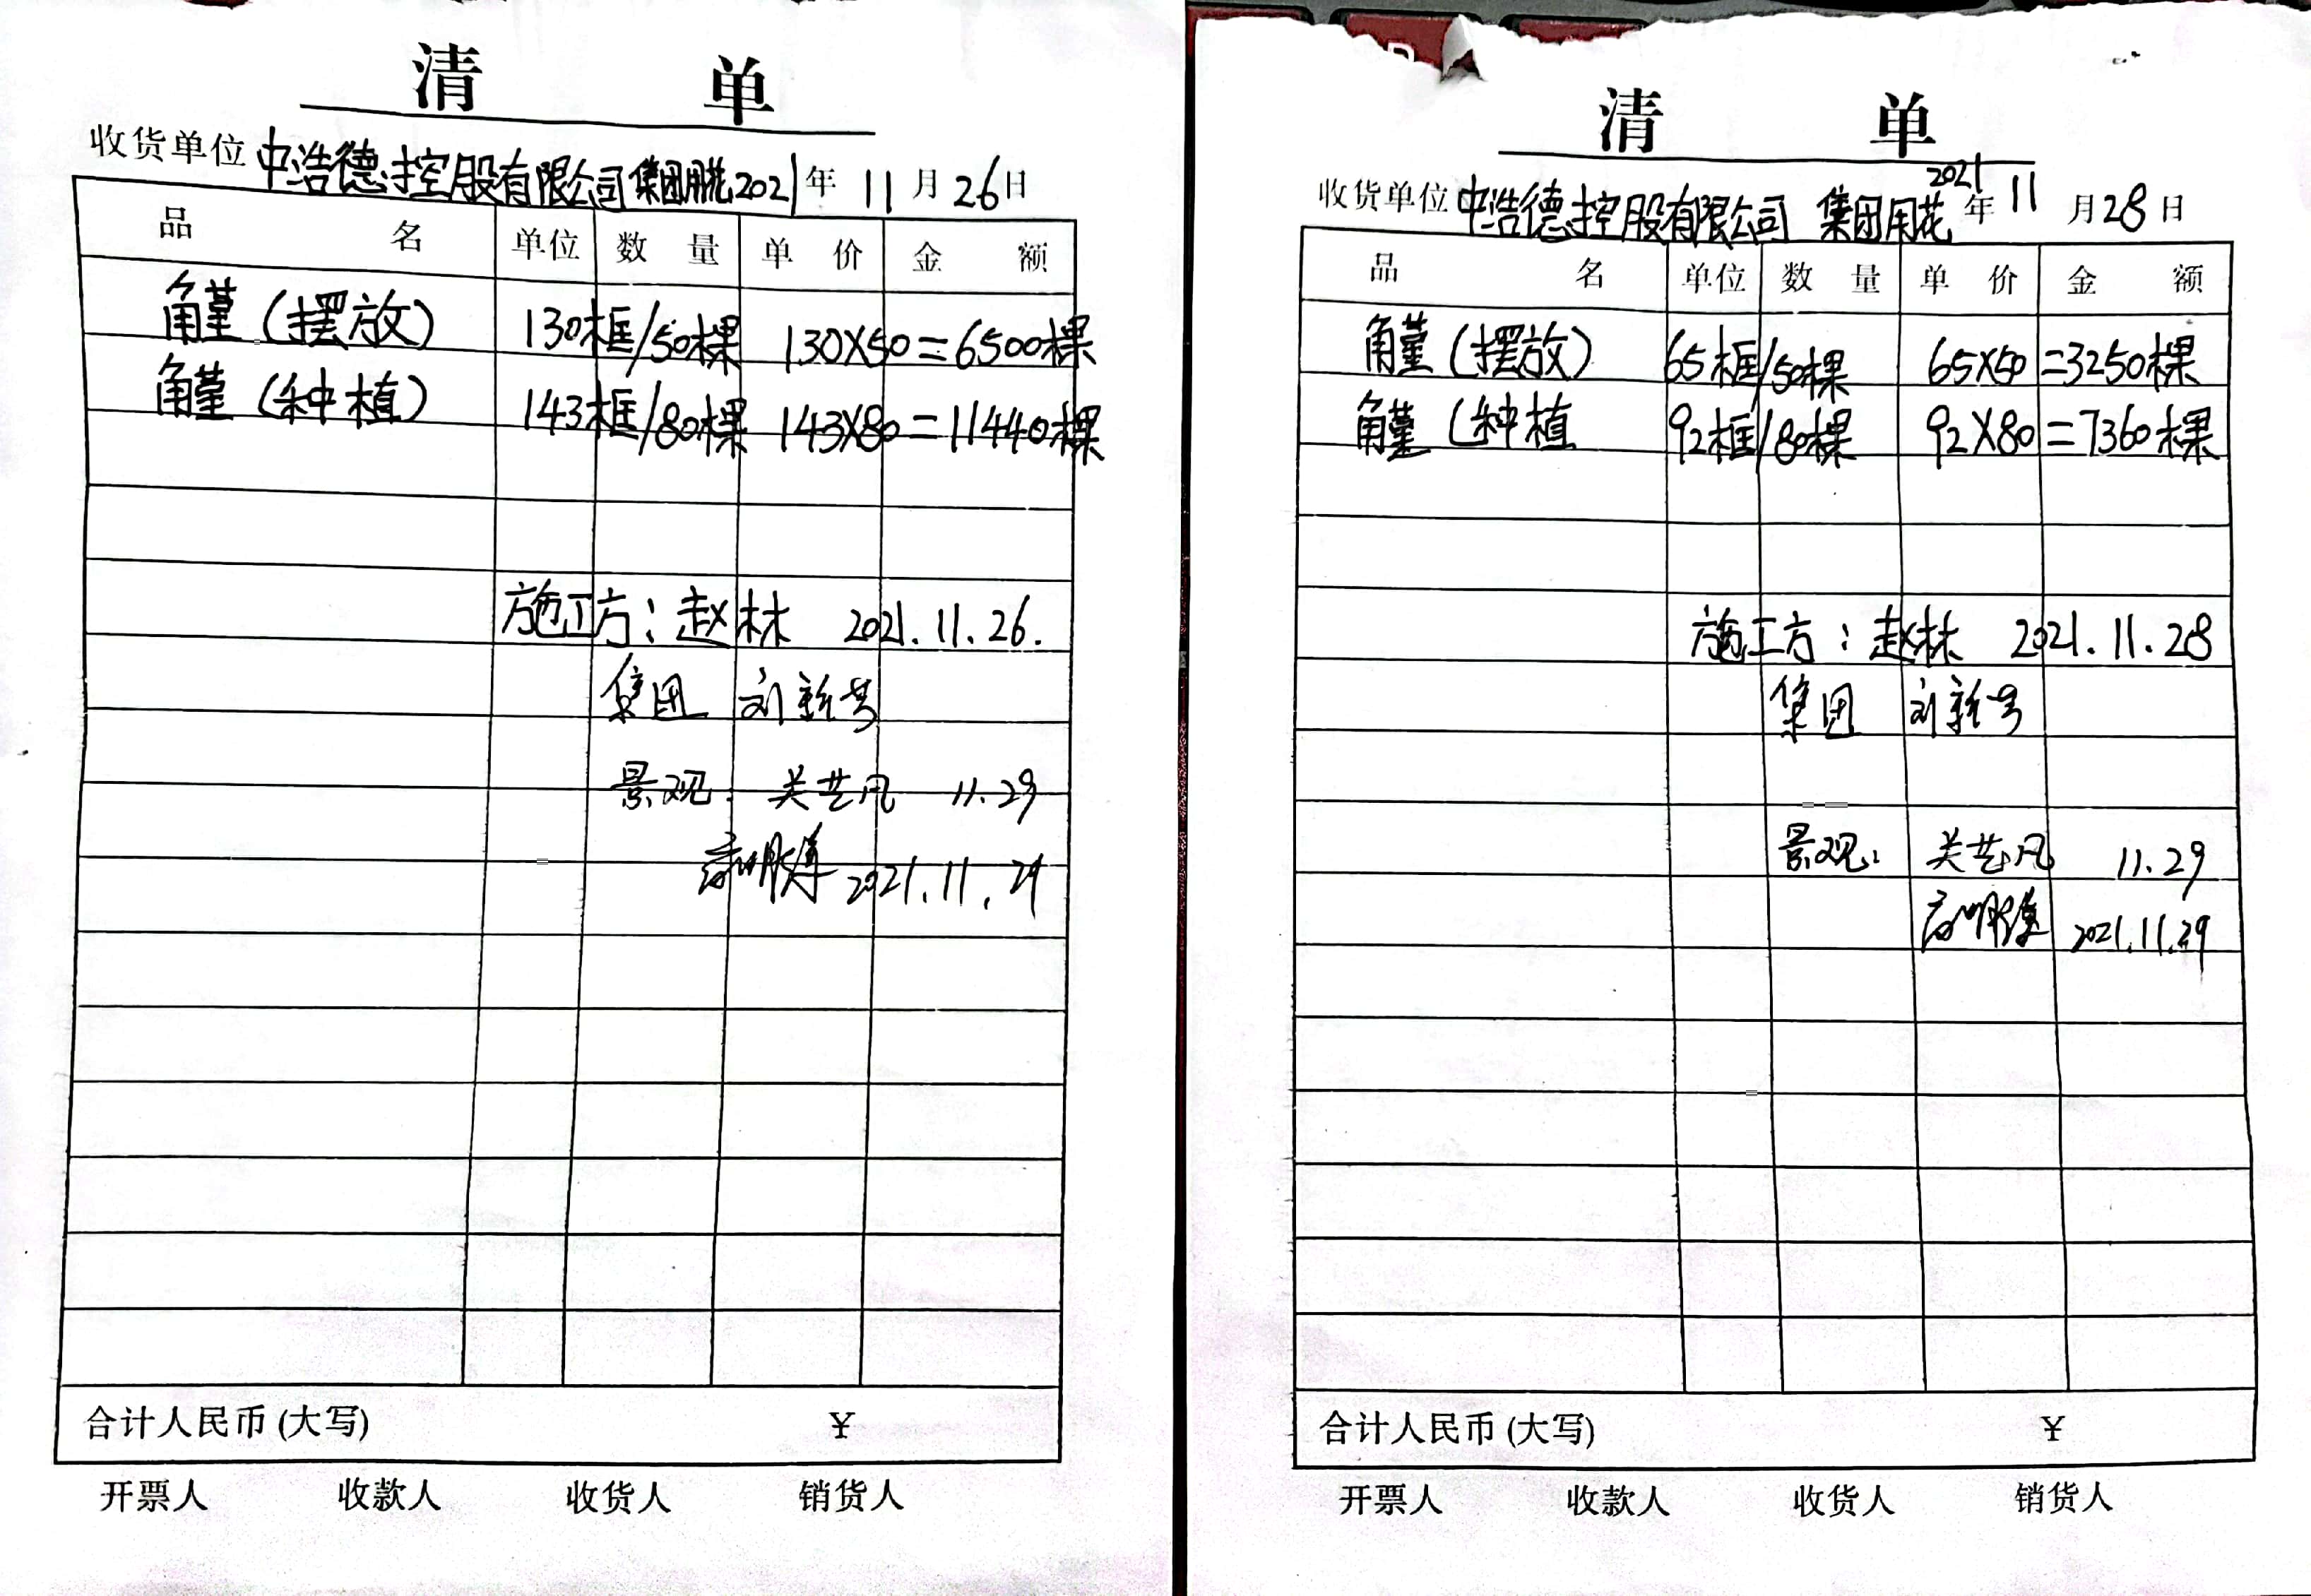 清 单
收货单位 中浩德控股有限公司 集团用花 2021年 11月26日
品名 单位 数量 单价 金额
角堇(摆放) 130框/50棵 130X50=6500棵
角堇(种植) 143框/80棵 143X80=11440棵
施工方:赵林 2021.11.26.
集团
景观: 关艺凡 11.29
2021.11.29
合计人民币(大写) ¥
开票人 收款人 收货人 销货人
清 单
收货单位 中浩德控股有限公司 集团用花 2021年 11月28日
品名 单位 数量 单价 金额
角堇(摆放) 65框/50棵 65X50=3250棵
角堇(种植 92框/80棵 92X80=7360棵
施工方:赵林 2021.11.28
集团
景观: 关艺凡 11.29
2021.11.29
合计人民币(大写) ¥
开票人 收款人 收货人 销货人